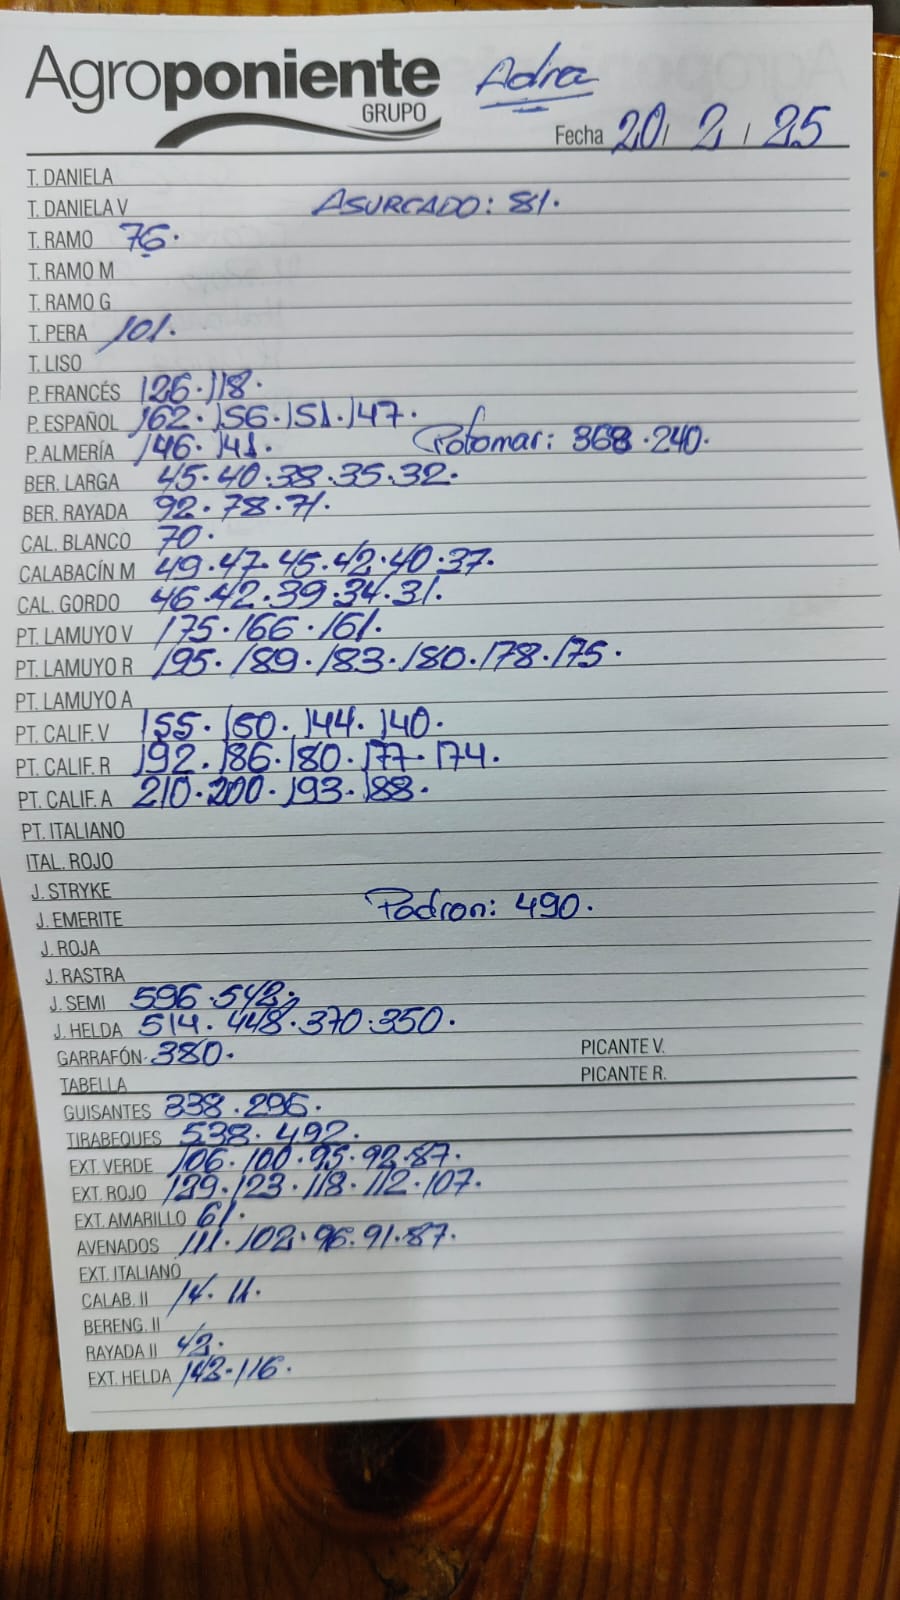 Agroponiente
GRUPO
Adra
Fecha 20 / 2 / 25
T. DANIELA
T. DANELA V ASURCADO: 81.
T. RAMO 76.
T. RAMO M
T. RAMO G
T. PERA 101.
T. LISO
P. FRANCÉS 126. 118.
P. ESPAÑOL 162. 156. 151. 147.
P. ALMERÍA 146. 141. Potomar: 368. 240.
BER. LARGA 45. 40. 38. 35. 32.
BER. RAYADA 92. 78. 71.
CAL. BLANCO 70.
CALABACÍN M 49. 47. 45. 42. 40. 37.
CAL. GORDO 46. 42. 39. 34. 31.
PT. LAMUYO V 175. 166. 161.
PT. LAMUYO R 195. 189. 183. 180. 178. 175.
PT. LAMUYO A
PT. CALIF. V 155. 150. 144. 140.
PT. CALIF. R 192. 186. 180. 177. 174.
PT. CALIF. A 210. 200. 193. 188.
PT. ITALIANO
ITAL. ROJO
J. STRYKE
J. EMERITE Padron: 490.
J. ROJA
J. RASTRA
J. SEMI 596. 542.
J. HELDA 514. 448. 370. 350.
GARRAFÓN 380. PICANTE V.
TABELLA PICANTE R.
GUISANTES 338. 296.
TIRABEQUES 538. 492.
EXT. VERDE 106. 100. 95. 92. 87.
EXT. ROJO 129. 123. 118. 112. 107.
EXT. AMARILLO 61.
AVENADOS 111. 102. 96. 91. 87.
EXT. ITALIANO
CALAB. II 14. 11.
BERENG. II
RAYADA II 42.
EXT. HELDA 143. 116.